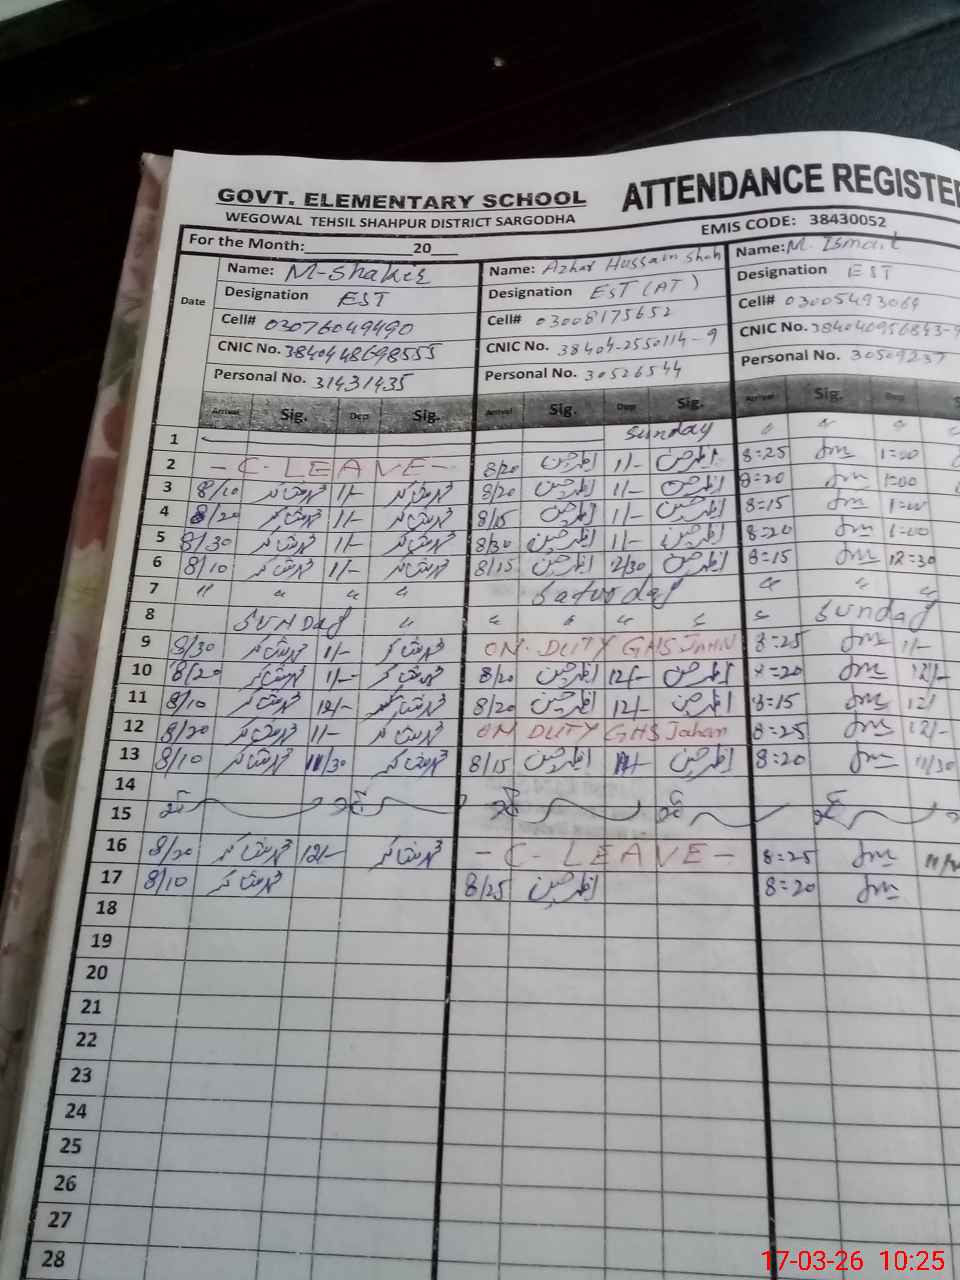 GOVT. ELEMENTARY SCHOOL ATTENDANCE REGISTE
WEGOWAL TEHSIL SHAHPUR DISTRICT SARGODHA EMIS CODE: 38430052
For the Month: 20
Date
Name: M-Shakir Name: Azhar Hussain Shah Name: M. Ismail
Designation EST Designation EST (AT) Designation EST
Cell# 03076049490 Cell# 03008175652 Cell# 03005493064
CNIC No. 3840448698555 CNIC No. 38404-2550114-9 CNIC No. 384040956843-9
Personal No. 31431435 Personal No. 30526544 Personal No. 30509237
Arrival Sig. Dep Sig. Arrival Sig. Dep Sig. Arrival Sig. Dep S
1 Sunday " " "
2 - C. LEAVE - 8/20 اظہر حسین 1/- اظہر حسین 8=25 1=00
3 8/10 محمد شاکر 1/- محمد شاکر 8/20 اظہر حسین 1/- اظہر حسین 8=20 1=00
4 8/20 محمد شاکر 1/- محمد شاکر 8/15 اظہر حسین 1/- اظہر حسین 8=15 1=00
5 8/30 محمد شاکر 1/- محمد شاکر 8/30 اظہر حسین 1/- اظہر حسین 8=20 1=00
6 8/10 محمد شاکر 1/- محمد شاکر 8/15 اظہر حسین 12/30 اظہر حسین 8=15 12=30
7 " " " " Saturday " " "
8 SUNDAY " " " " " Sunday
9 8/30 محمد شاکر 1/- محمد شاکر ON DUTY GHS JAHN 8=25 1/-
10 8/20 محمد شاکر 1/- محمد شاکر 8/20 اظہر حسین 12/- اظہر حسین 8=20 12/-
11 8/10 محمد شاکر 12/- محمد شاکر 8/20 اظہر حسین 12/- اظہر حسین 8=15 12/
12 8/20 محمد شاکر 1/- محمد شاکر ON DUTY GHS Jahan 8=25 12/-
13 8/10 محمد شاکر 11/30 محمد شاکر 8/15 اظہر حسین اظہر حسین 8=20 11/30
14
15
16 8/20 محمد شاکر 12/- محمد شاکر - C. LEAVE - 8=25
17 8/10 محمد شاکر 8/25 اظہر حسین 8=20
18
19
20
21
22
23
24
25
26
27
28
17-03-26 10:25